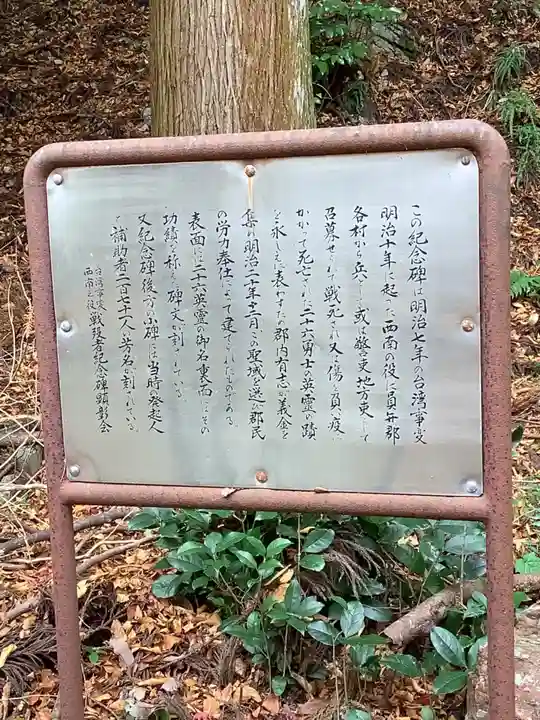 この紀念碑は明治七年の台湾事変
明治十年に起った西南の役に員弁郡
各村から兵として或は警吏地方吏として
召募されて戦死され又は傷を負い疫に
かかって死亡された二十六勇士の英霊の蹟
を永しえに表わすため郡内有志が義金を
集め明治二十年十二月この聖域を選び郡民
の労力奉仕によって建てられたものである。
表面に二十六英霊の御名裏面にその
功績を称えた碑文が刻まれている。
又紀念碑後方の小碑には当時の発起人
と補助者二百七十七人の芳名が刻されている。
台湾事変
西南之役 戦歿者紀念碑顕彰会